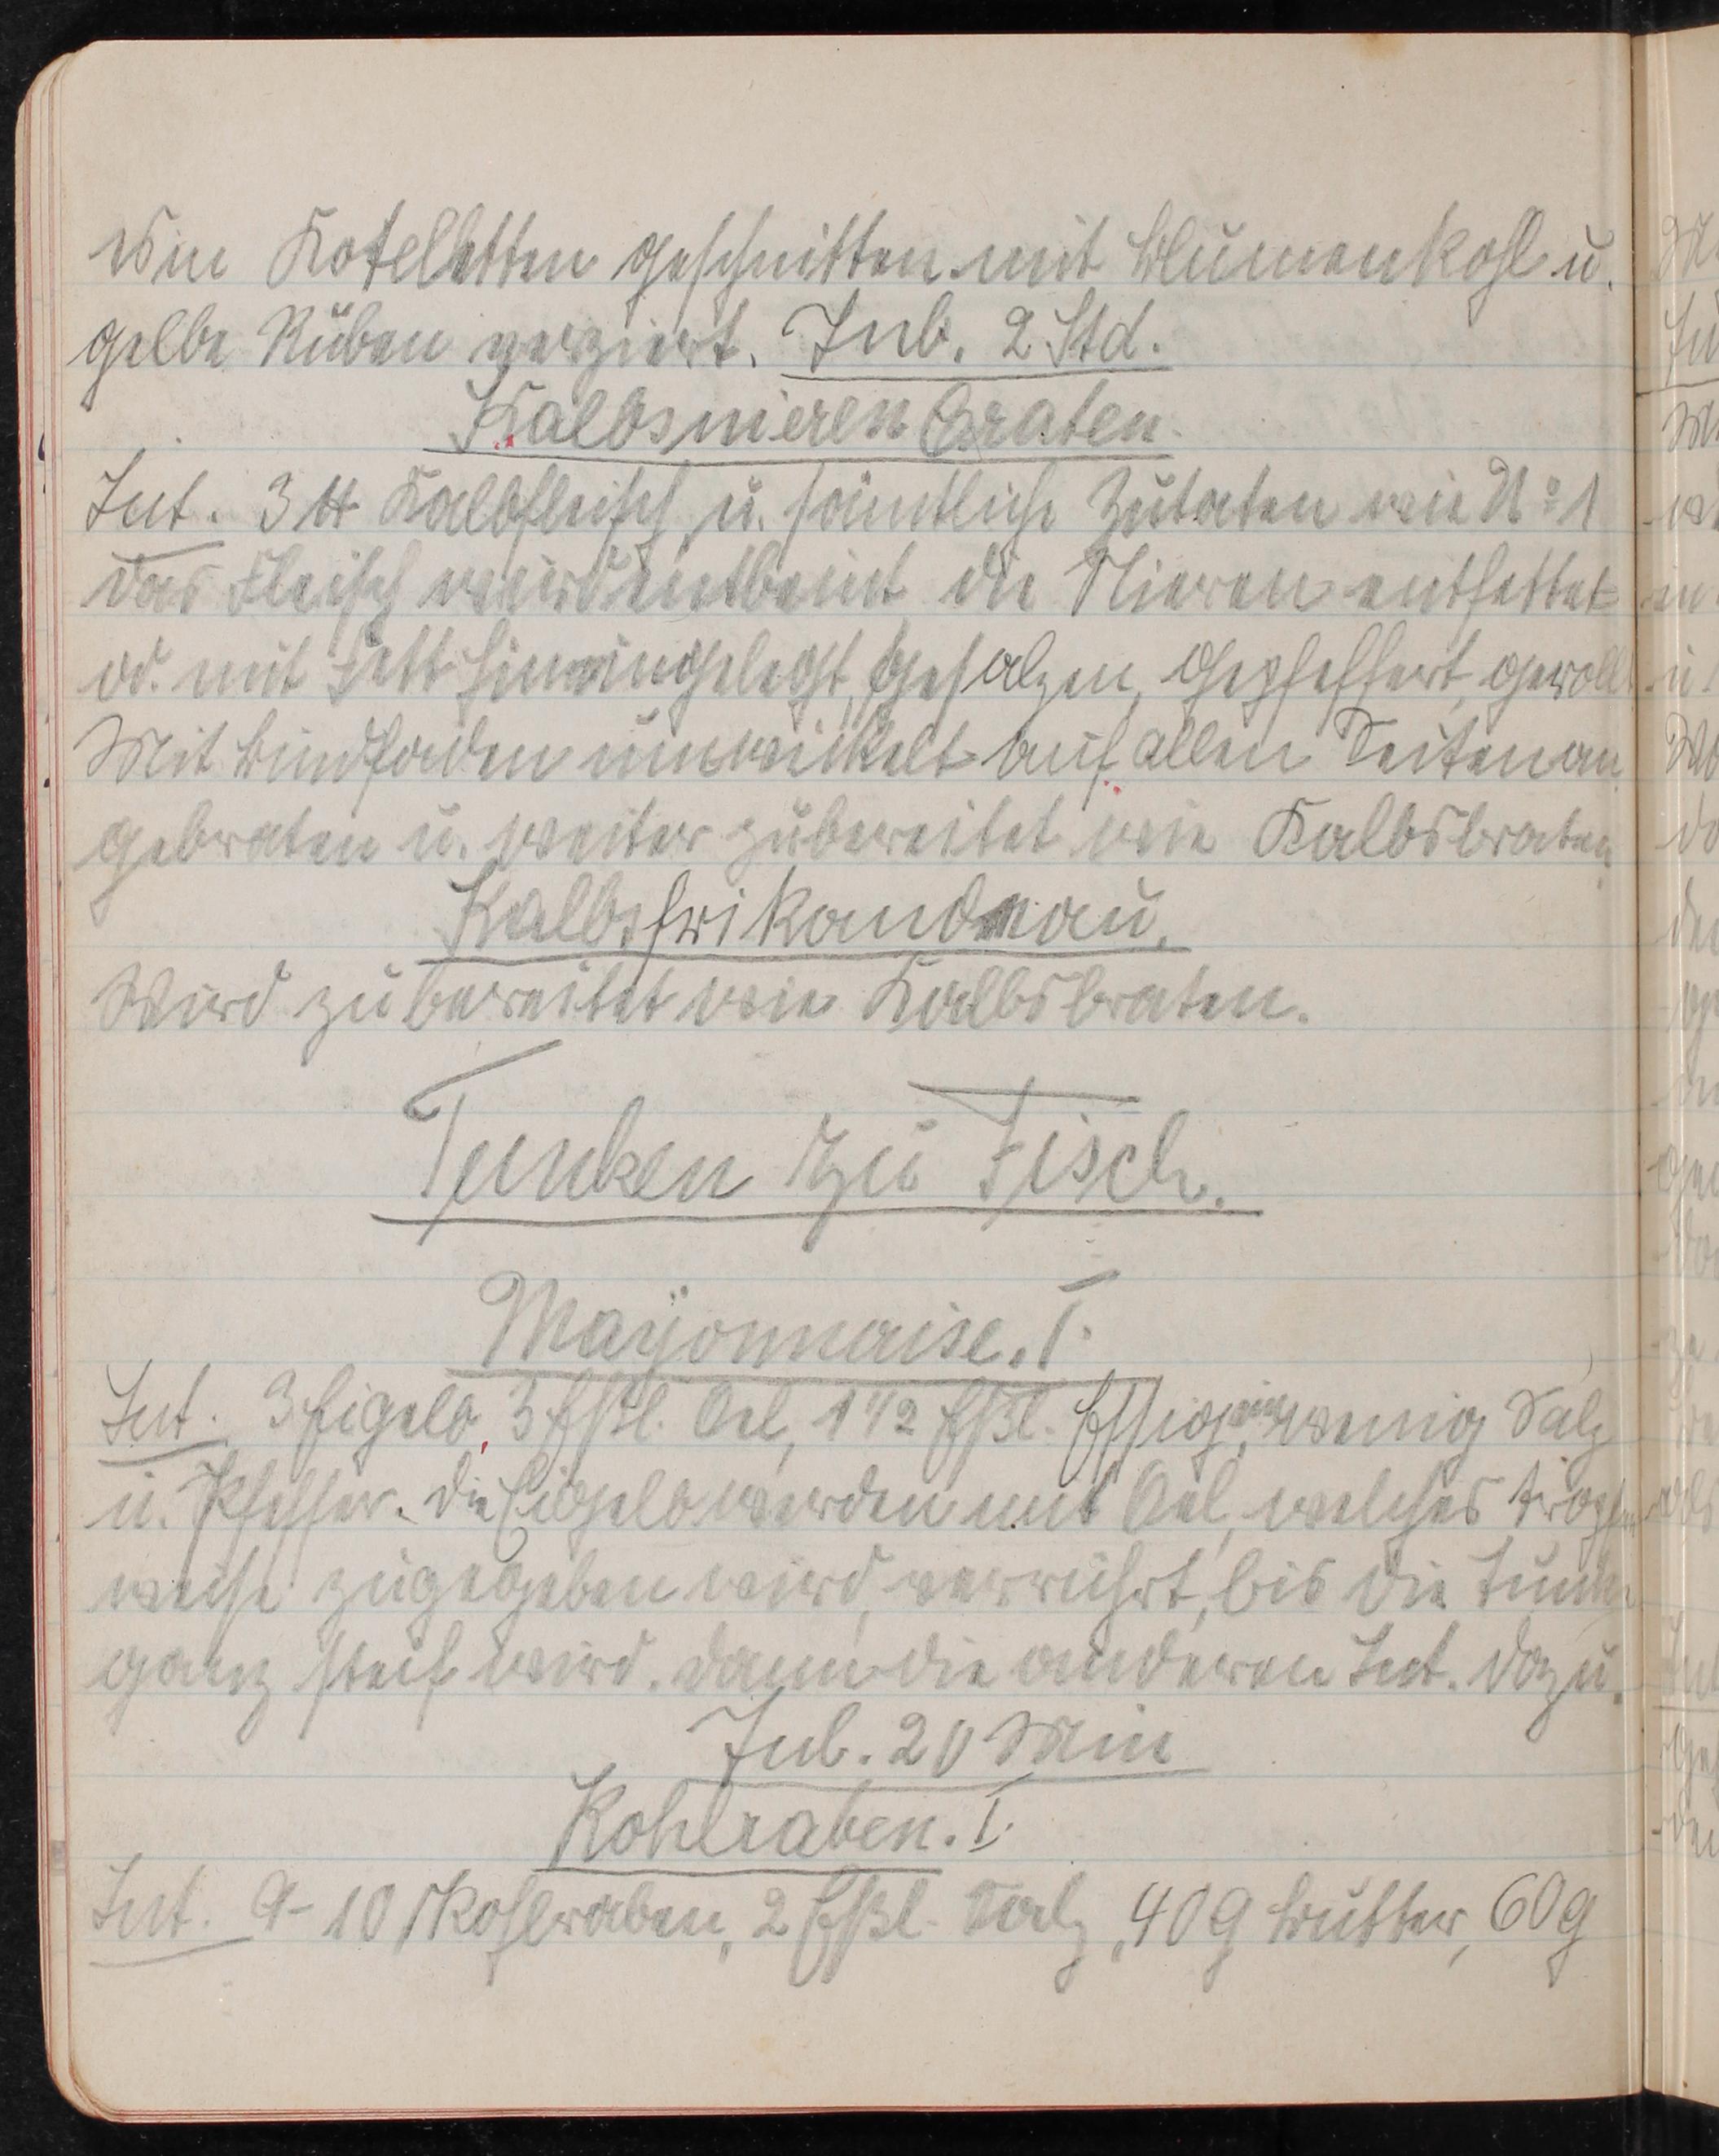 Wie Koteletten geschnitten mit Blumenkohl u.
gelbe Rüben verziert. Zub. 2 Std.
Kalbsnierenbraten.
Zut. 3 ℔ Kalbfleisch u. sämtliche Zutaten wie No 1
das Fleisch wird entbeint die Nieren entfettet
od. mit Fett hineingelegt, gesalzen, gepfeffert, gerollt
Mit Bindfaden umwickelt auf allen Seiten an
gebraten u. weiter zubereitet wie Kalbsbraten
Kalbsfrikandeau.
Wird zubereitet wie Kalbsbraten.
Tunken zu Fisch.
Mayonnaise. I.
Zut. 3 Eigelb, 3 Eßl. Oel, 1 1/2 Eßl. Essig, ein wenig Salz
u. Pfeffer. Die Eigelb werden mit Oel, welches tropfen
weise zugegeben wird, verrührt, bis die Tunke
ganz steif wird. dann die anderen Zut. dazu.
Zub. 20 Min
Kohlraben. I.
Zut. 9-10 Kohlraben, 2 Eßl. Salz, 40 g Butter, 60 g